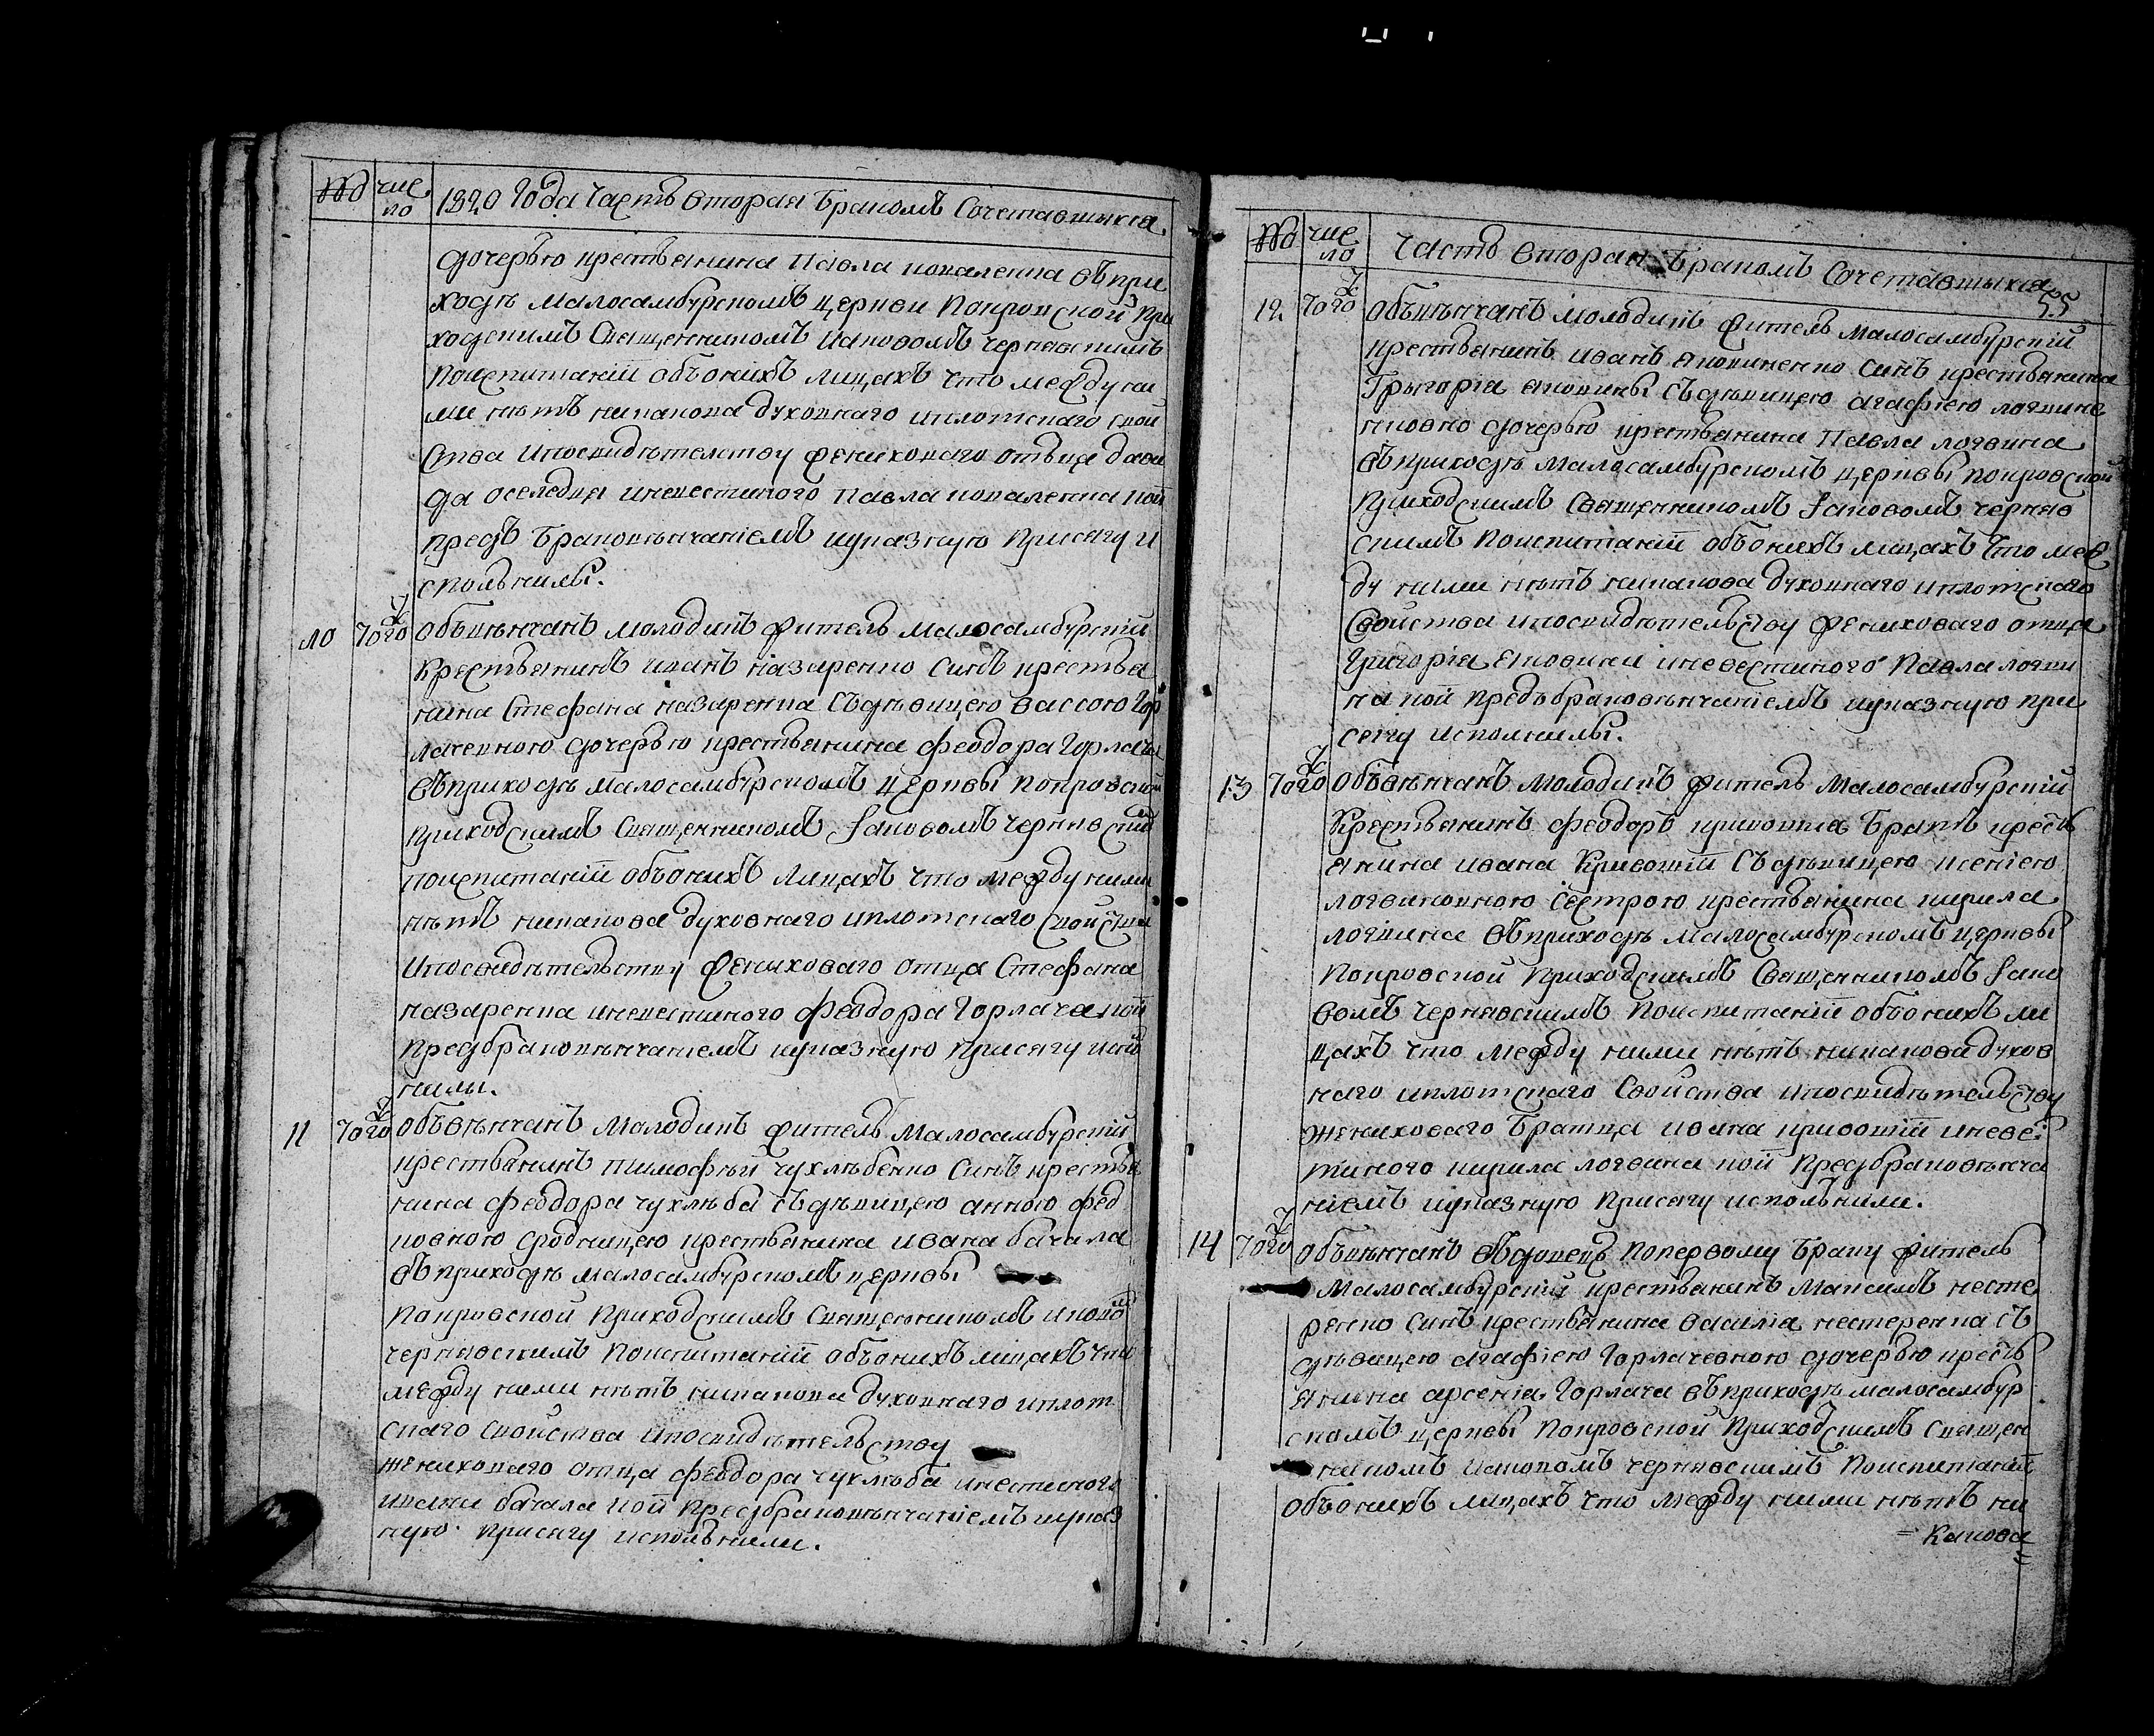 № чис
ло 1820 Года Часть вторая Бракомъ Сочетавшихся.
дочерью крестьянина Павла коваленка въпри
ходѣ Малосамбурскомъ церкви Покровской При
ходскимъ Священникомъ Иаковомъ чернявскимъ
Поиспитаніи обоонихъ лицахъ что между ни
ми нѣтъ никакова духовнаго иплотскаго свой
Ства ипосвидѣтелству женихового отвца дави
да оселедця иневестиного Павла коваленка кои
предъ Браковѣнчаніемъ иуказную Присягу и
сполънилы.
10 того Ж Объвѣнчанъ молодикъ житель малосамбурскій
Крестьянинъ иванъ назаренко Синъ крестья
нина Стефана назаренка Съдѣвицею вассою Гор
лачевною дочерью крестьянина феодора Горлача
въприходѣ малосамбурскомъ церквы Покровской
приходскимъ Священникомъ Іаковомъ чернявским
поиспитаніи обоонихъ Лицахъ что между ними
нѣтъ никакова духовнаго иплотскаго Свойства
Ипосвидѣтельству жениховаго отца Стефана
назаренка иневестиного феодора Горлача кои
предбраковѣнчаніемъ иуказную присягу испо
нилы.
11 того Ж Объвѣнчанъ Молодикъ житель Малосамбурскій
крестьянинъ тимофѣй чухлѣбенко Синъ крестья
нина феодора чухлѣба Съдѣвицею анною фед
ковною сродницею крестьянина ивана бачала
въприходѣ малосамбурскомъ церквы
Покровской Приходскимъ Священникомъ иаково
чернявскимъ Поиспитаніи обоонихъ лицахъ что
между ними нѣтъ никакова духовнаго иплот
скаго Свойства ипосвидѣтельству
жениховаго отца феодора чухлѣба инестиного
ивана бачала кои предбраковѣнчаніемъ иуказ
ную присягу исполънили.
№ чис
ло Часть вторая Бракомъ Сочетавшихся
55
12. того Ж Объвѣнчанъ молодикъ житель малосамбурскій
крестьянинъ иванъ яковиненко Синъ крестьянина
Грыгорія яковины Съдѣвицею агафіею логвине
нковно дочерью крестьянина Павла логвина
въприходѣ малосамбурскомъ церквы покровской
приходскимъ Священникомъ Іаковомъ черняв
скимъ поиспитаніи обоонихъ лицахъ что меж
ду ними нѣтъ никакова духовнаго иплотскаго
Свойства ипосвидѣтельству жениховаго отца
Григорія яковини иневестиного Павла логви
на кои предъбраковѣнчаніемъ иуказную при
сягу исполнилы.
13 того Ж Объвѣнчанъ Молодикъ житель Малосамбурскій
Крестьянинъ феодоръ кривошія Братъ кресть
янина ивана Кривошіи Съдѣвицею ксеніею
логвиновною Сестрою крестьянина кирила
логвина въприходѣ малосамбурскомъ церквы
Покровской Приходскимъ Священникомъ Іако
вомъ чернявскимъ Поиспитаніи обоонихъ ли
цахъ что между ними нѣтъ никакова духов
наго иплотскаго Свойства ипосвидѣтельству
жениховаго Братца ивана кривошіи иневес
тиного кирила логвина кои Предбраковѣнча
ніемъ иуказную присягу исполънили.
14 того Ж Объвѣнчанъ въдовецъ попервому Браку житель
Малосамбурскій крестьянинъ Максимъ несте
ренко Синъ крестьянина василія нестеренка Съ
дѣвицею агафіею Горлачевною дочерью кресть
янина арсенія Горлача въприходѣ малосамбур
скомъ церквы Покровской Приходскимъ Священ
никомъ иаковомъ чернявскимъ Поиспитаніи
объонихъ лицахъ что между ними нѣтъ ни
= Какова =